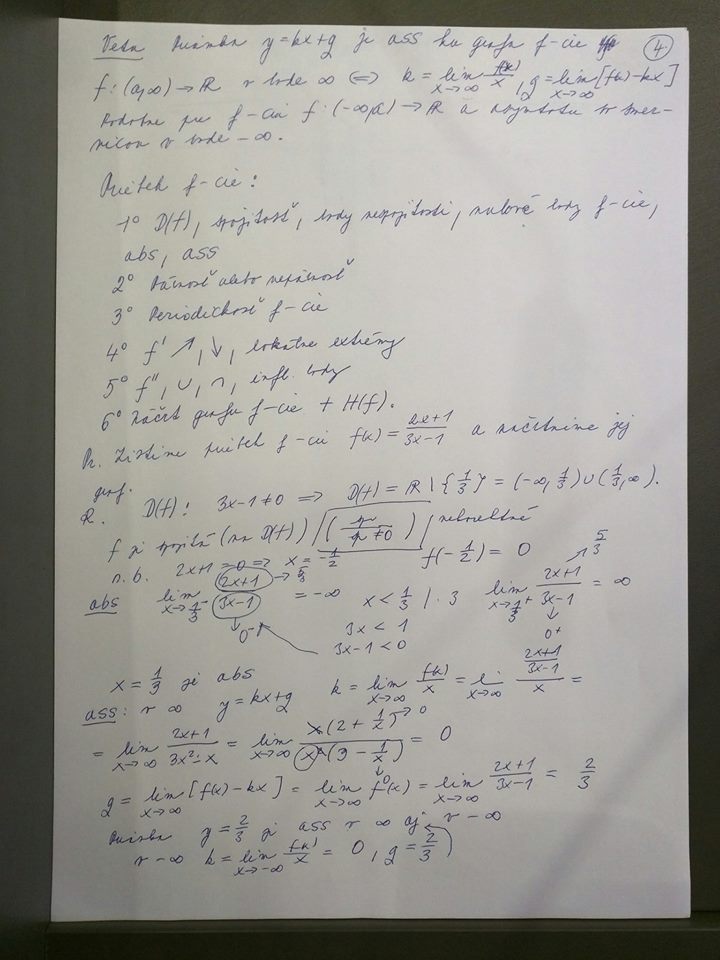 Veta Priamka y=kx+q je ASS ku grafu f-cie 4
f: (a,∞) → R v bode ∞ ⇔ k = lim x→∞ f(x)/x, q = lim x→∞ [f(x)-kx]
Podobne pre f-ciu f: (-∞,a) → R a asymptotu so smer-
nicou v bode -∞.
Priebeh f-cie:
1° D(f), spojitosť, body nespojitosti, nulové body f-cie,
abs, ASS
2° Párnosť alebo nepárnosť
3° Periodickosť f-cie
4° f' ↗, ↘, lokálne extrémy
5° f'', ∪, ∩, infl. body
6° Náčrt grafu f-cie + H(f).
Pr. Zistime priebeh f-cie f(x) = (2x+1)/(3x-1) a načrtnime jej
graf.
R. D(f): 3x-1≠0 ⇒ D(f) = R \ {1/3} = (-∞, 1/3) ∪ (1/3, ∞).
f je spojitá (na D(f))
n. b. 2x+1=0 ⇒ x = -1/2 f(-1/2) = 0
abs lim x→1/3⁻ (2x+1)/(3x-1) = -∞ → 5/3 x < 1/3 |·3 lim x→1/3⁺ (2x+1)/(3x-1) = ∞ → 5/3
0⁻ 3x < 1 0⁺
3x-1 < 0
x = 1/3 je abs
ass: v ∞ y=kx+q k = lim x→∞ f(x)/x = li x→∞ ((2x+1)/(3x-1))/x =
= lim x→∞ (2x+1)/(3x²-x) = lim x→∞ x(2+1/x)/(x²(3-1/x)) = 0 → 0 ↓ 0
q = lim x→∞ [f(x)-kx] = lim x→∞ f(x) = lim x→∞ (2x+1)/(3x-1) = 2/3
Priamka y=2/3 je ASS v ∞ aj v -∞
v -∞ k = lim x→-∞ f(x)/x = 0, q = 2/3